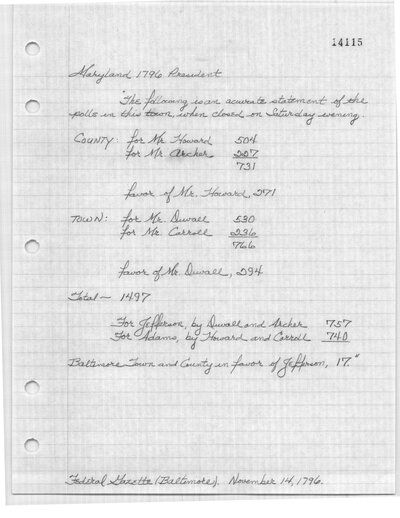 14115
Maryland 1796 President
"The following is an acurate statement of the
polls in this town, when closed on Saturday evening.
COUNTY: for Mr. Howard 504
for Mr. Archer 227
731
favor of Mr. Howard, 271
TOWN: for Mr. Duvall 530
for Mr. Carroll 236
766
favor of Mr. Duvall, 294
Total — 1497
For Jefferson, by Duvall and Archer 757
For Adams, by Howard and Carroll 740
Baltimore Town and County in favor of Jefferson, 17."
Federal Gazette (Baltimore). November 14, 1796.